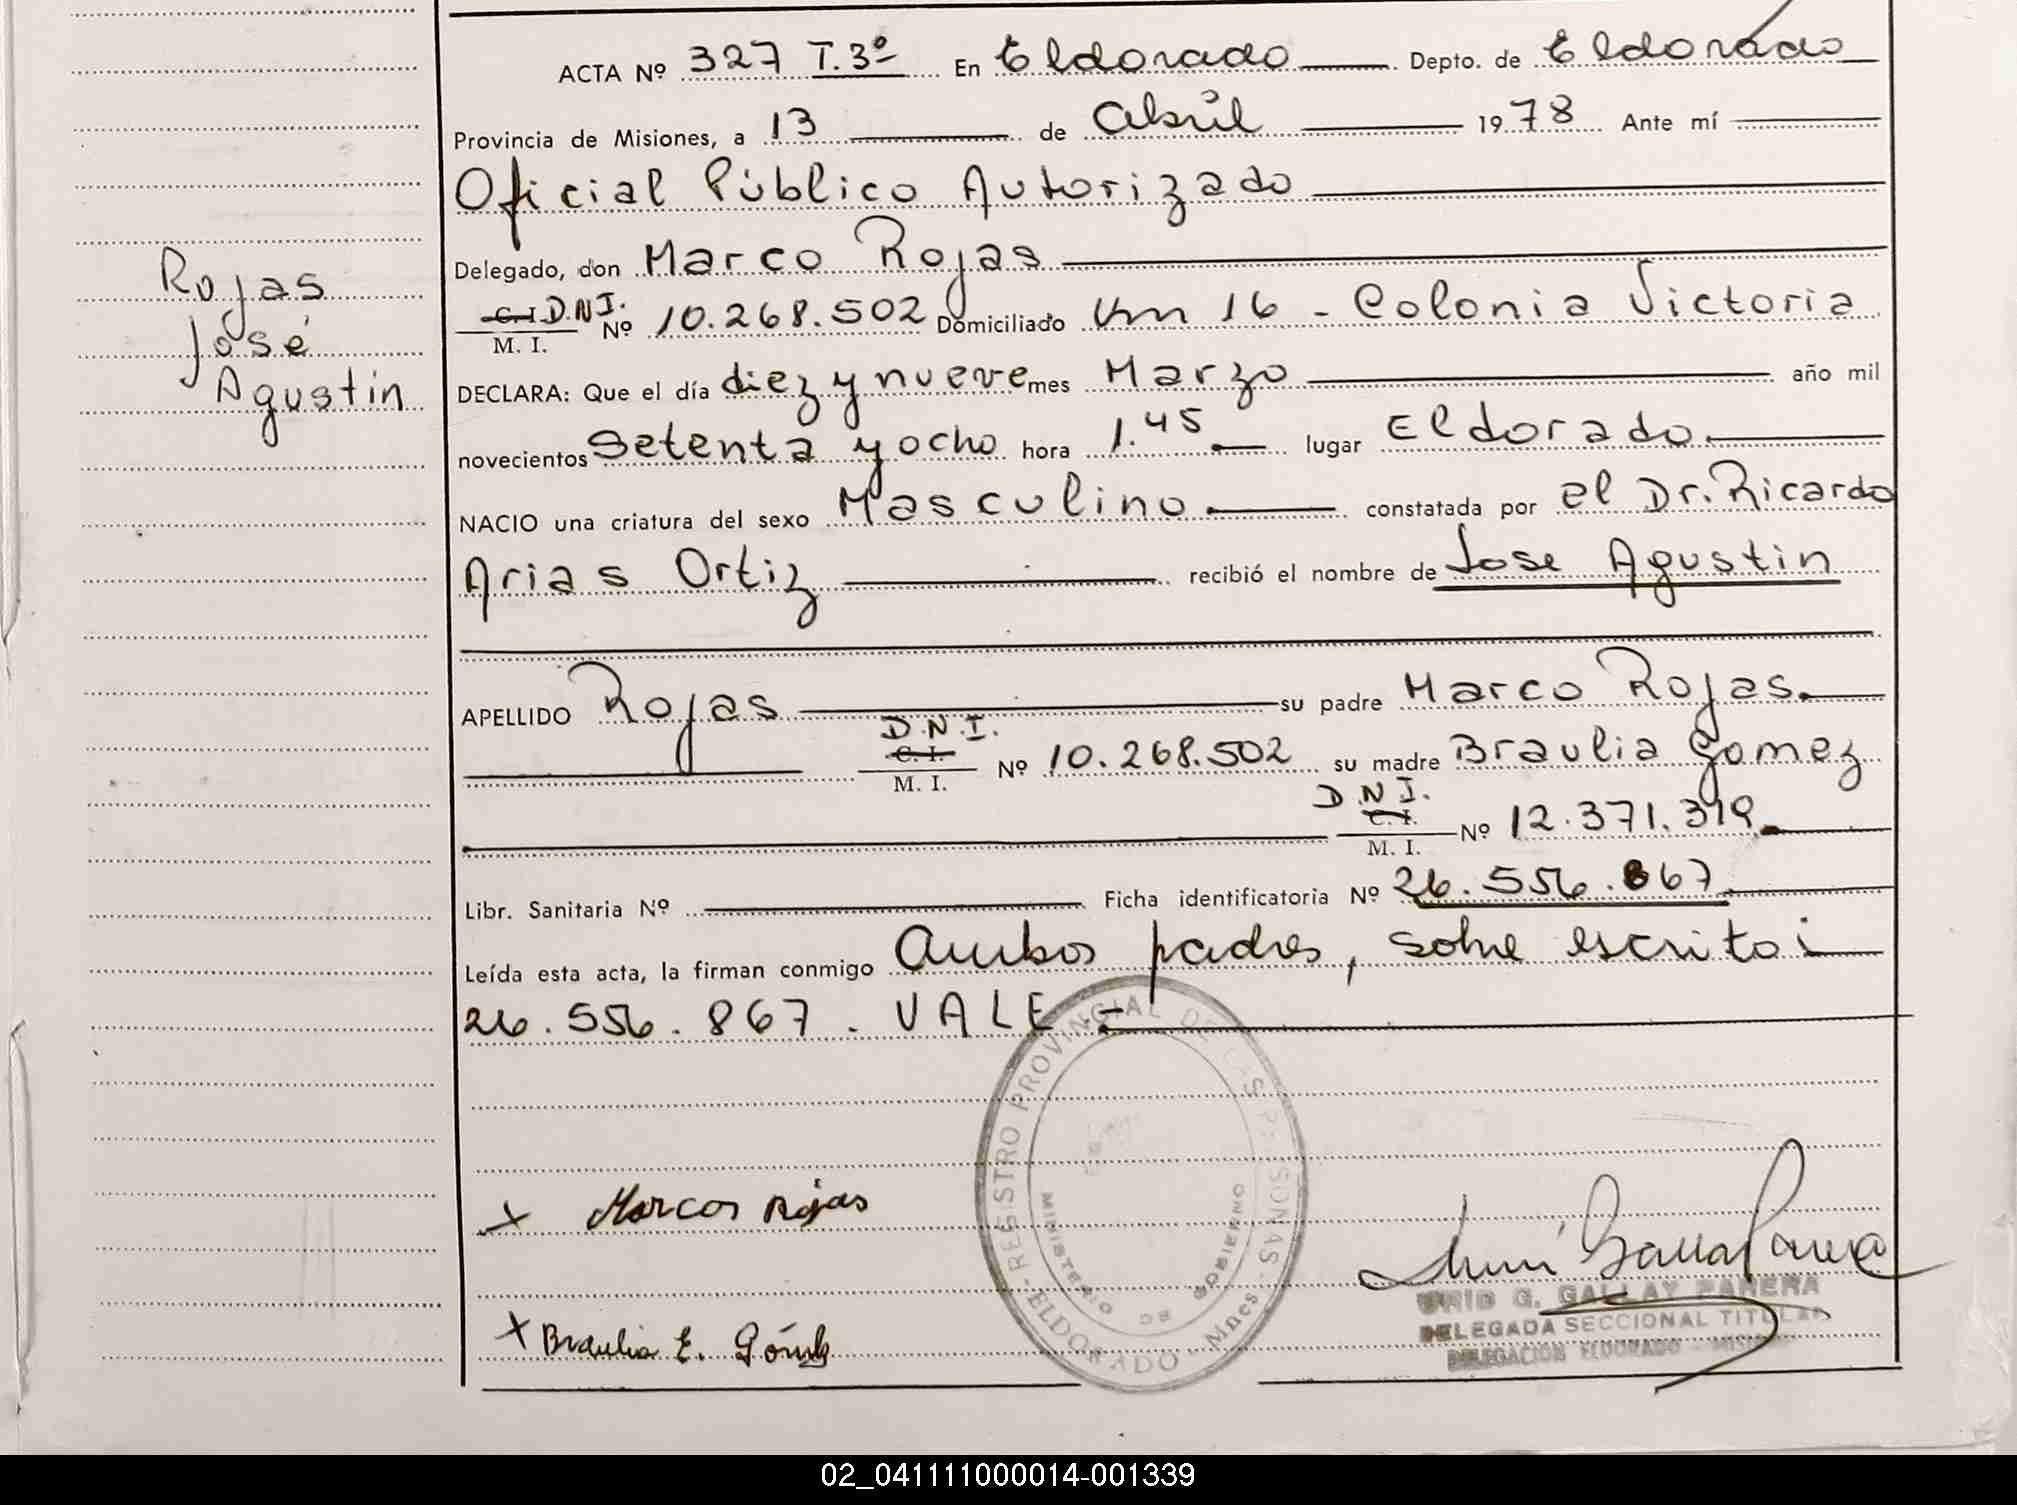 ACTA Nº 327 T.3º En Eldorado Depto. de Eldorado
Provincia de Misiones, a 13 de abril 1978 Ante mí
Oficial Público Autorizado
Delegado, don Marco Rojas
C.I. D.N.I.
M. I. Nº 10.268.502 Domiciliado Km 16 - Colonia Victoria
DECLARA: Que el día diez y nueve mes Marzo año mil
novecientos Setenta y ocho hora 1.45 lugar Eldorado
NACIO una criatura del sexo Masculino constatada por el Dr. Ricardo
Arias Ortiz recibió el nombre de Jose Agustin
Rojas
José
Agustín
APELLIDO Rojas su padre Marco Rojas.
D.N.I.
C. I.
M. I. Nº 10.268.502 su madre Braulia Gomez
D.N.I.
C. I.
M. I. Nº 12.371.319
Libr. Sanitaria Nº Ficha identificatoria Nº 26.556.867
Leída esta acta, la firman conmigo Ambos padres, sobre escrito:
26.556.867. VALE -
REGISTRO PROVINCIAL DE LAS PERSONAS
MINISTERIO DE GOBIERNO
ELDORADO - Mnes.
x Marcos Rojas
x Braulia E. Gómez
G. GALLAY PARERA
DELEGADA SECCIONAL TITULAR
DELEGACION ELDORADO - MISIONES
02_041111000014-001339